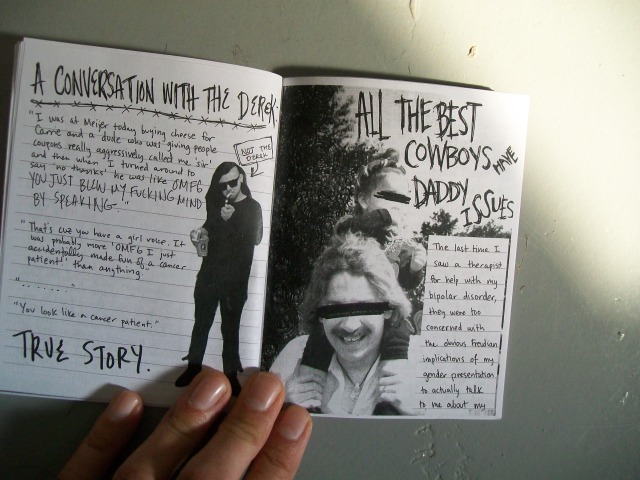 A CONVERSATION WITH THE DEREK:
"I was at Meijer today buying cheese for
Carre and a dude who was giving people
coupons really aggressively called me 'sir'
and then when I turned around to
say 'no thanks' he was like OMFG
YOU JUST BLEW MY FUCKING MIND
BY SPEAKING."
NOT THE
DEREK
"That's cuz you have a girl voice. It
was probably more 'OMFG I just
accidentally made fun of a cancer
patient' than anything."
"........"
"You look like a cancer patient."
TRUE STORY.
ALL THE BEST
COWBOYS HAVE
DADDY
ISSUES
The last time I
saw a therapist
for help with my
bipolar disorder,
they were too
concerned with
the obvious Freudian
implications of my
gender presentation
to actually talk
to me about my